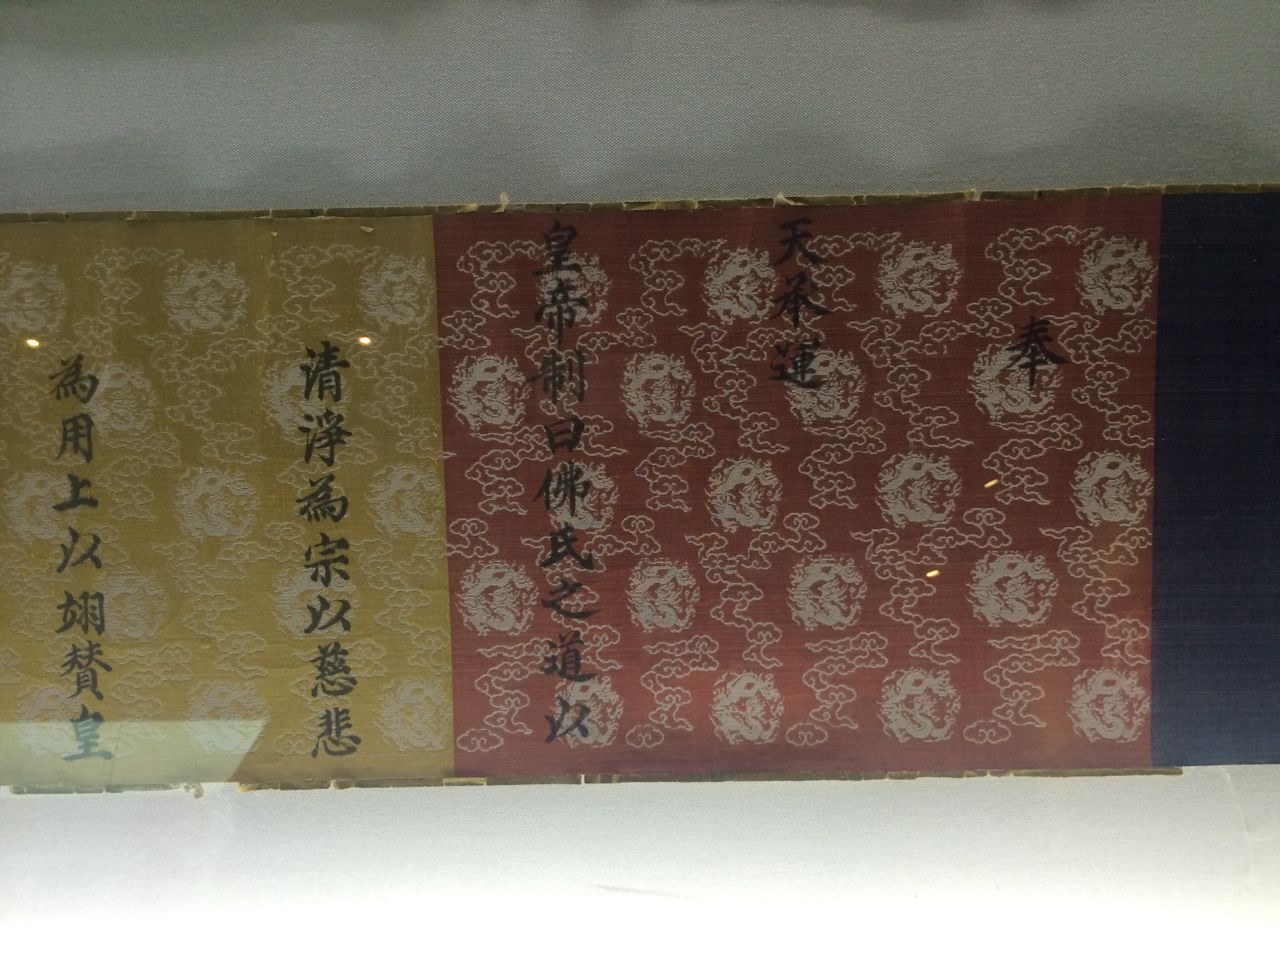 奉
天承運
皇帝制曰佛氏之道以
清淨為宗以慈悲
為用上以翊贊皇